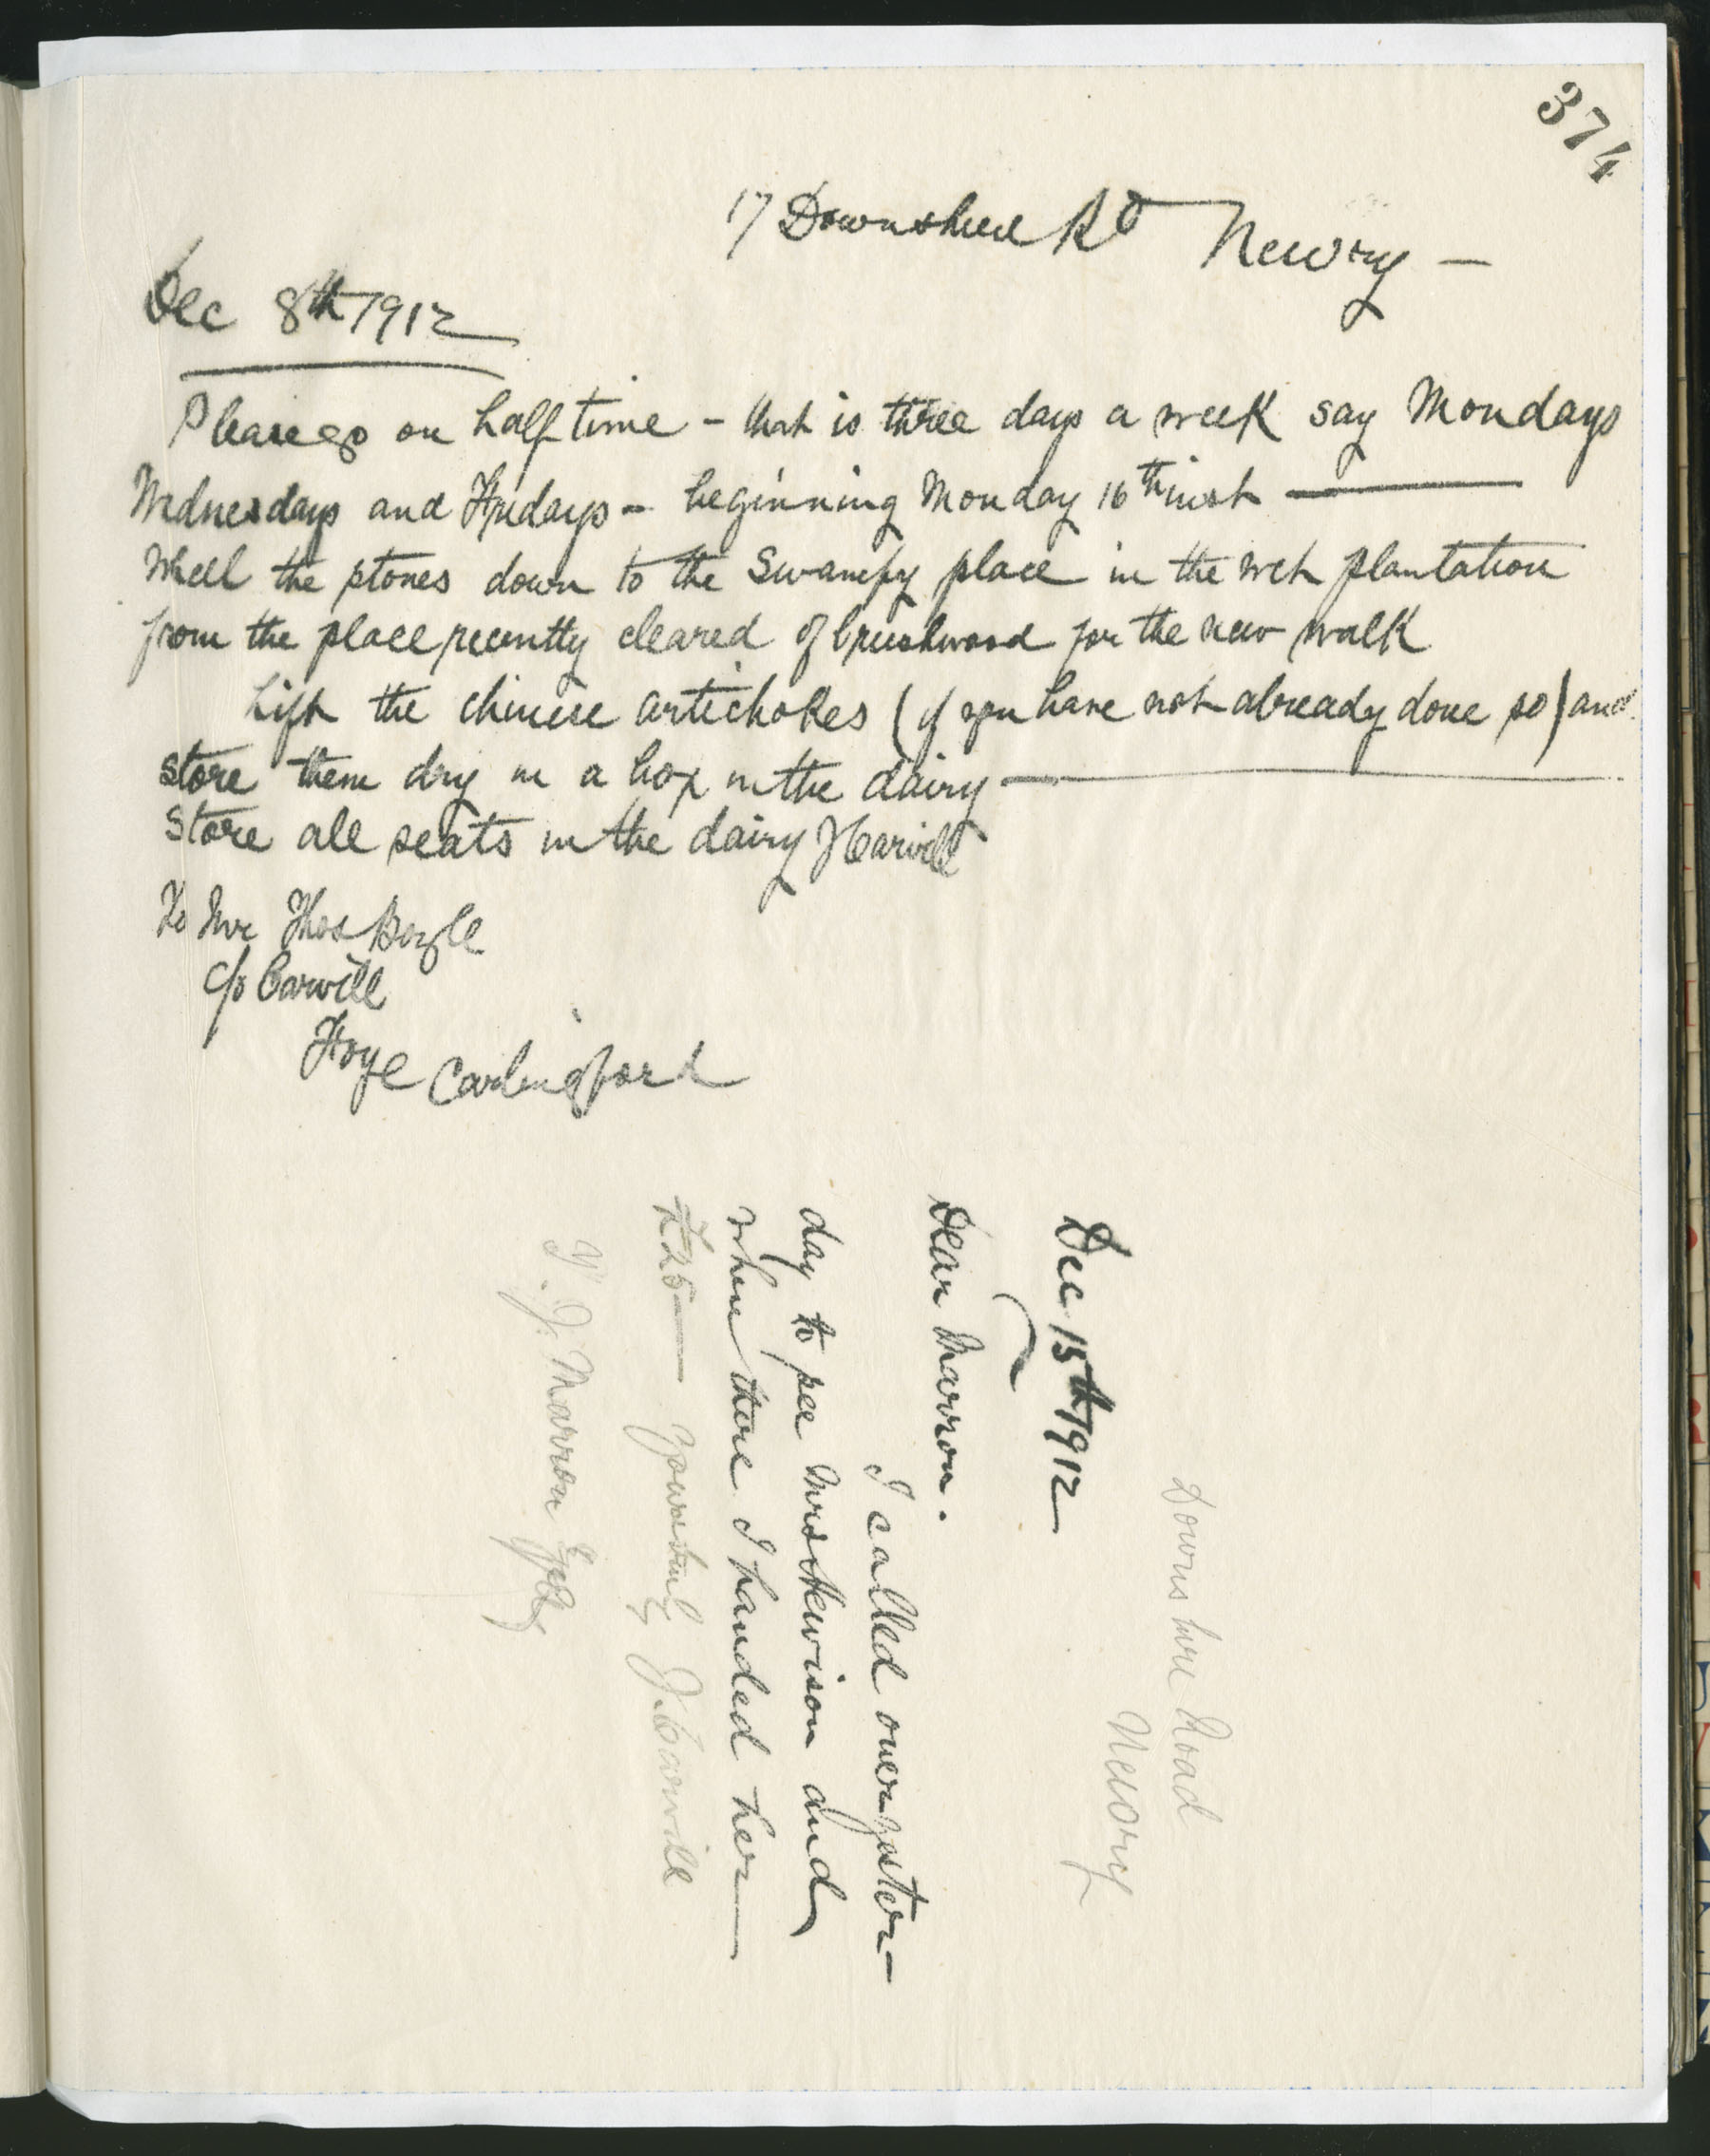 374
17 Downshire Rd Newry —
Dec 8th 1912
Please go on half time - that is three days a week say Mondays
Wednesdays and Fridays - beginning Monday 16th inst —
Wheel the stones down to the swampy place in the wet plantation
from the place recently cleared of brushwood for the new walk
Lift the chinese artichokes (if you have not already done so) and
store them dry in a box in the dairy —
Store all seats in the dairy JCarvill
To Mr Thos Boyle
c/o Carvill
Carlingford
Downshire Road
Newry
Dec 15th 1912
Dear Marron.
I called over yester-
day to see Mrs and
when there I handed her —
£25 — Yours truly J. Carvill
J. Marron Esq